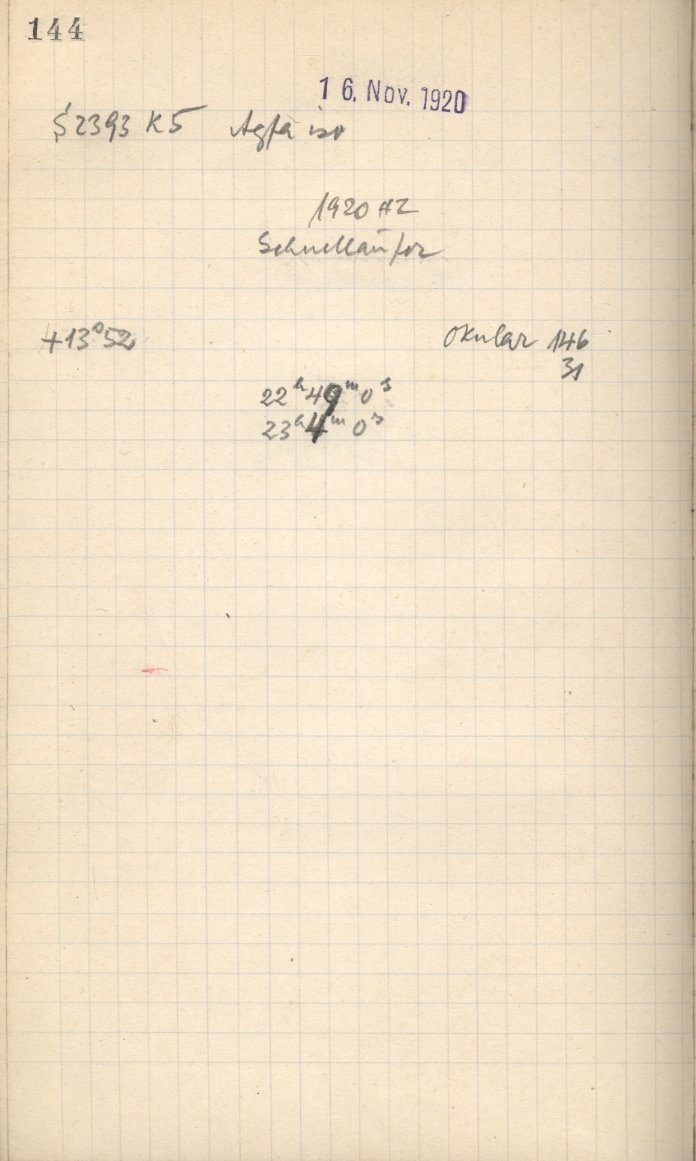 144
16. Nov. 1920
S 2393 K5 Agfa iso
1920 HZ
Schnelläufer
+13°52 Okular 146
31
22ʰ49ᵐ0ˢ
23ʰ4ᵐ0ˢ